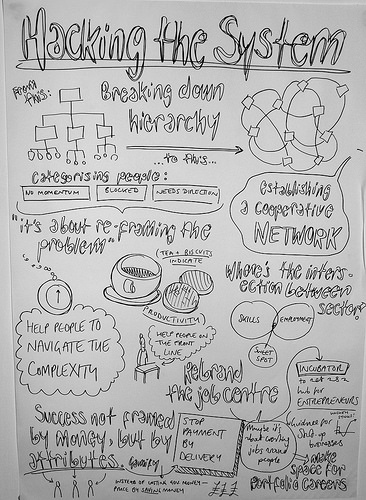 Hacking the System
From this:
Breaking down
hierarchy
...to this...
categorising people:
NO MOMENTUM
BLOCKED
NEEDS DIRECTION
establishing
a cooperative
NETWORK
"it's about re-framing the
problem"
(TEA + BISCUITS
INDICATE
PRODUCTIVITY)
HELP PEOPLE TO
NAVIGATE THE
COMPLEXITY
HELP PEOPLE ON
THE FRONT
LINE
Where's the inters-
ection between
sectors?
SKILLS
EMPLOYMENT
SWEET
SPOT
Rebrand
the job centre
INCUBATOR
to act as a
hub for
ENTREPRENEURS
Success not framed
by money, but by
attributes.
STOP
PAYMENT
BY
DELIVERY
Maybe it's
about working
jobs around
people
Guidance for
start-up
businesses
make
space for
portfolio careers
INSTEAD OF COSTING YOU MONEY -
PAID BY SAVING MONEY
£££